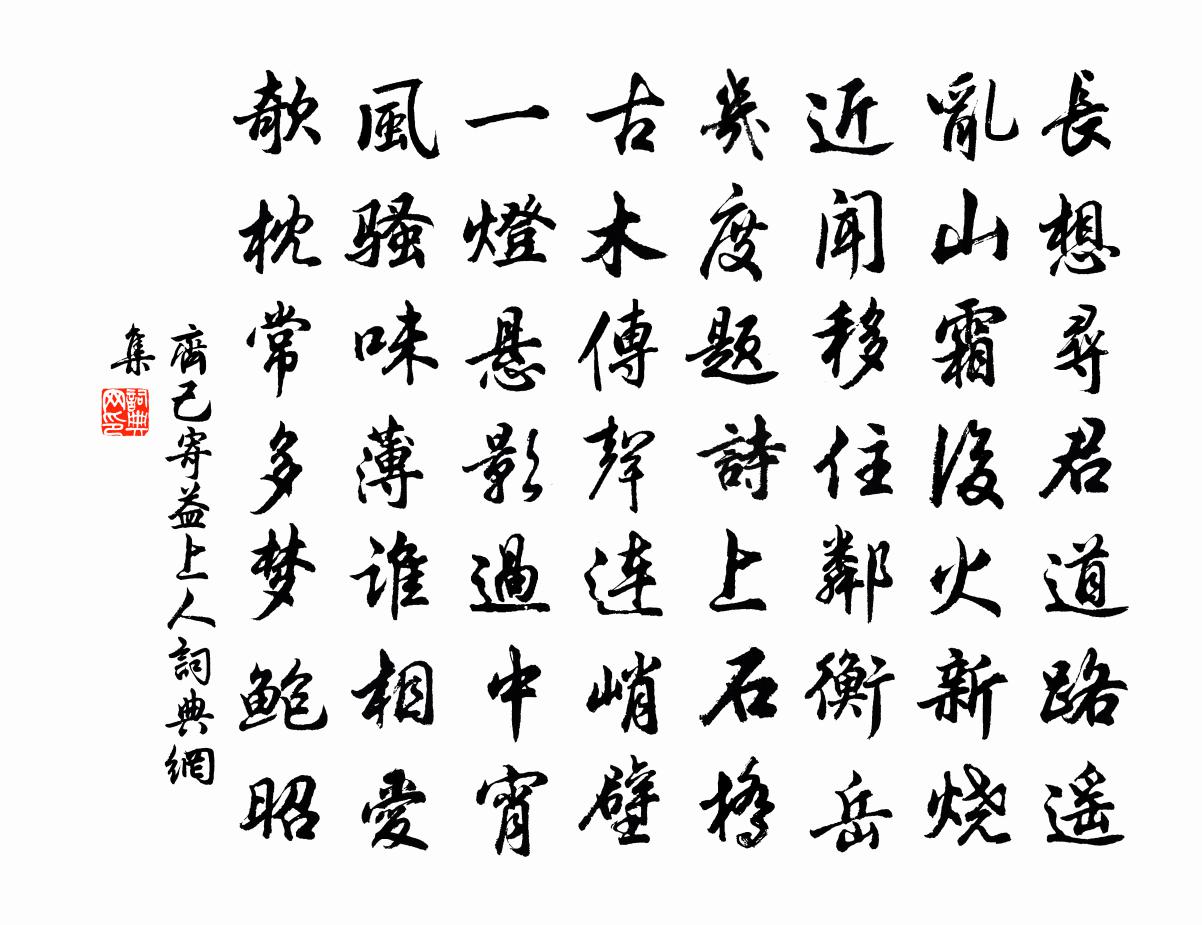 長想尋君道路遥
亂山霜後火新烧
近闻移住鄰衡岳
幾度题詩上石橋
古木傳聲連峭壁
一燈悬影過中宵
風骚味薄谁相愛
欹枕常多梦鲍昭
齊己寄益上人詞典網
集
詞典
网印